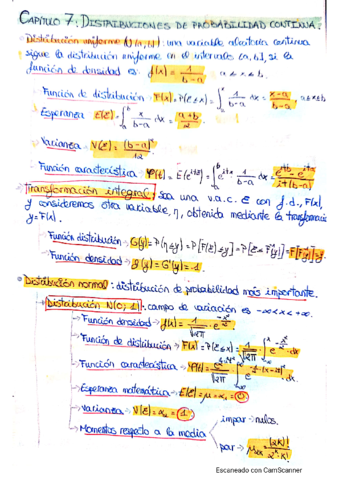 CAPÍTULO 7: DISTRIBUCIONES DE PROBABILIDAD CONTINUA:
Distribución uniforme U(a,b): una variable aleatoria continua
sigue la distribución uniforme en el intervalo [a,b], si la
función de densidad es: f(x) = 1/(b-a), a ≤ x ≤ b.
Función de distribución → F(x) = P(ξ ≤ x) = ∫ 1/(b-a) dx = (x-a)/(b-a), a ≤ x ≤ b
Esperanza E(ξ) = ∫_a^b x/(b-a) dx = (a+b)/2
Varianza → V(ξ) = (b-a)²/12
Función característica → φ(t) = E(e^{itξ}) = ∫_a^b e^{itx} 1/(b-a) dx = (e^{itb} - e^{ita})/(it(b-a))
Transformación integral: sea una v.a.c. ξ con f.d., F(x)
y consideremos otra variable, η, obtenida mediante la transformación
y = F(x).
Función distribución → G(y) = P(η ≤ y) = P[F(ξ) ≤ y] = P[ξ ≤ F^{-1}(y)] = F[F^{-1}(y)] = y
Función densidad → g(y) = G'(y) = 1
Distribución normal: distribución de probabilidad más importante.
Distribución N(0; 1): campo de variación es -∞ < x < +∞.
Función densidad → f(x) = 1/√2π · e^{-x²/2}
Función de distribución → F(x) = P(ξ ≤ x) = 1/√2π ∫_{-∞}^x e^{-x²/2} · dx
Función característica → φ(t) = dx.
Esperanza matemática → E(ξ) = μ = α₁ = 0
Varianza → V(ξ) = 1
Momentos respecto a la media
impar → nulos.
par → μ_{2k} = (2k)!/(2^k · k!)
Escaneado con CamScanner